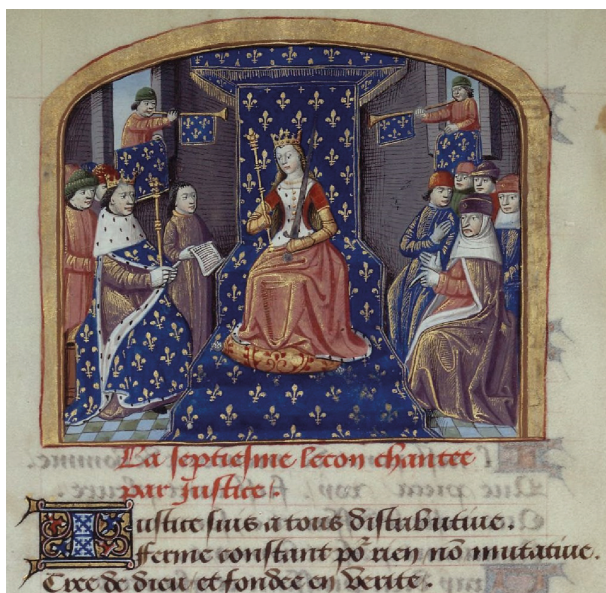 La septiesme lecon chantee
par Justice.
Justice suis a tous distributiue.
ferme constant po᷑ rien nõ mutatiue.
Cree de dieu et fondee en Verite.